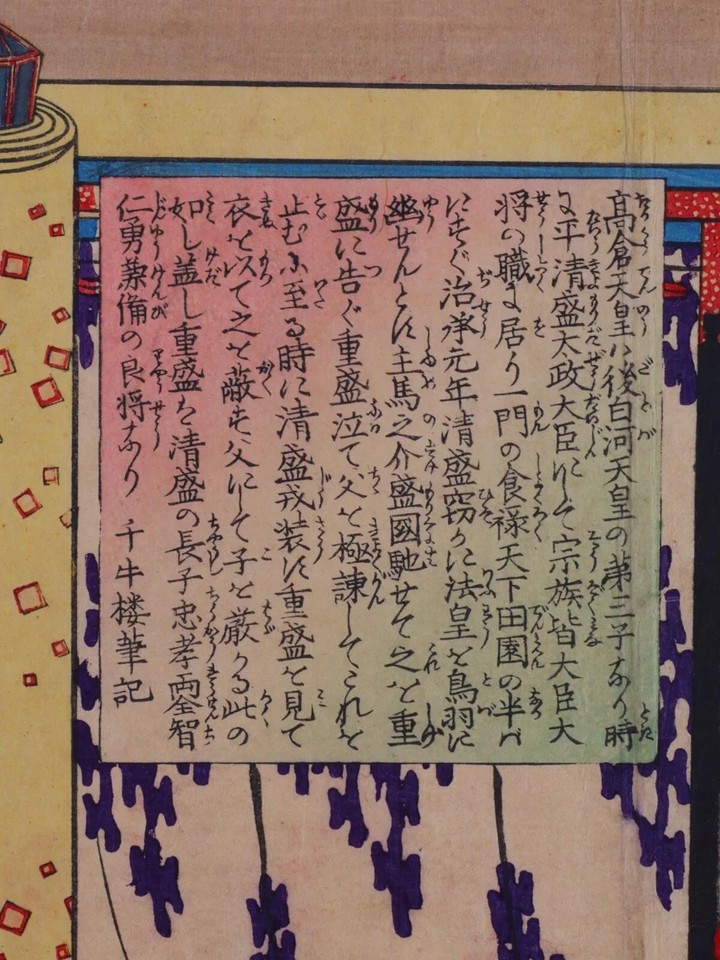 高倉天皇ハ後白河天皇の第三子なり時
に平清盛太政大臣にして宗族皆大臣大
将の職に居り一門の食禄天下田園の半バ
にすぐ治承元年清盛窃かに法皇を鳥羽に
幽せんとす主馬之介盛國馳せて之を重
盛に告ぐ重盛泣て父を極諌してこれを
止むるに至る時に清盛戎装す重盛を見て
衣を以て之を蔽ふ父にして子を厳かる此の
如し蓋し重盛を清盛の長子忠孝両全智
仁勇兼備の良将なり 千牛楼筆記